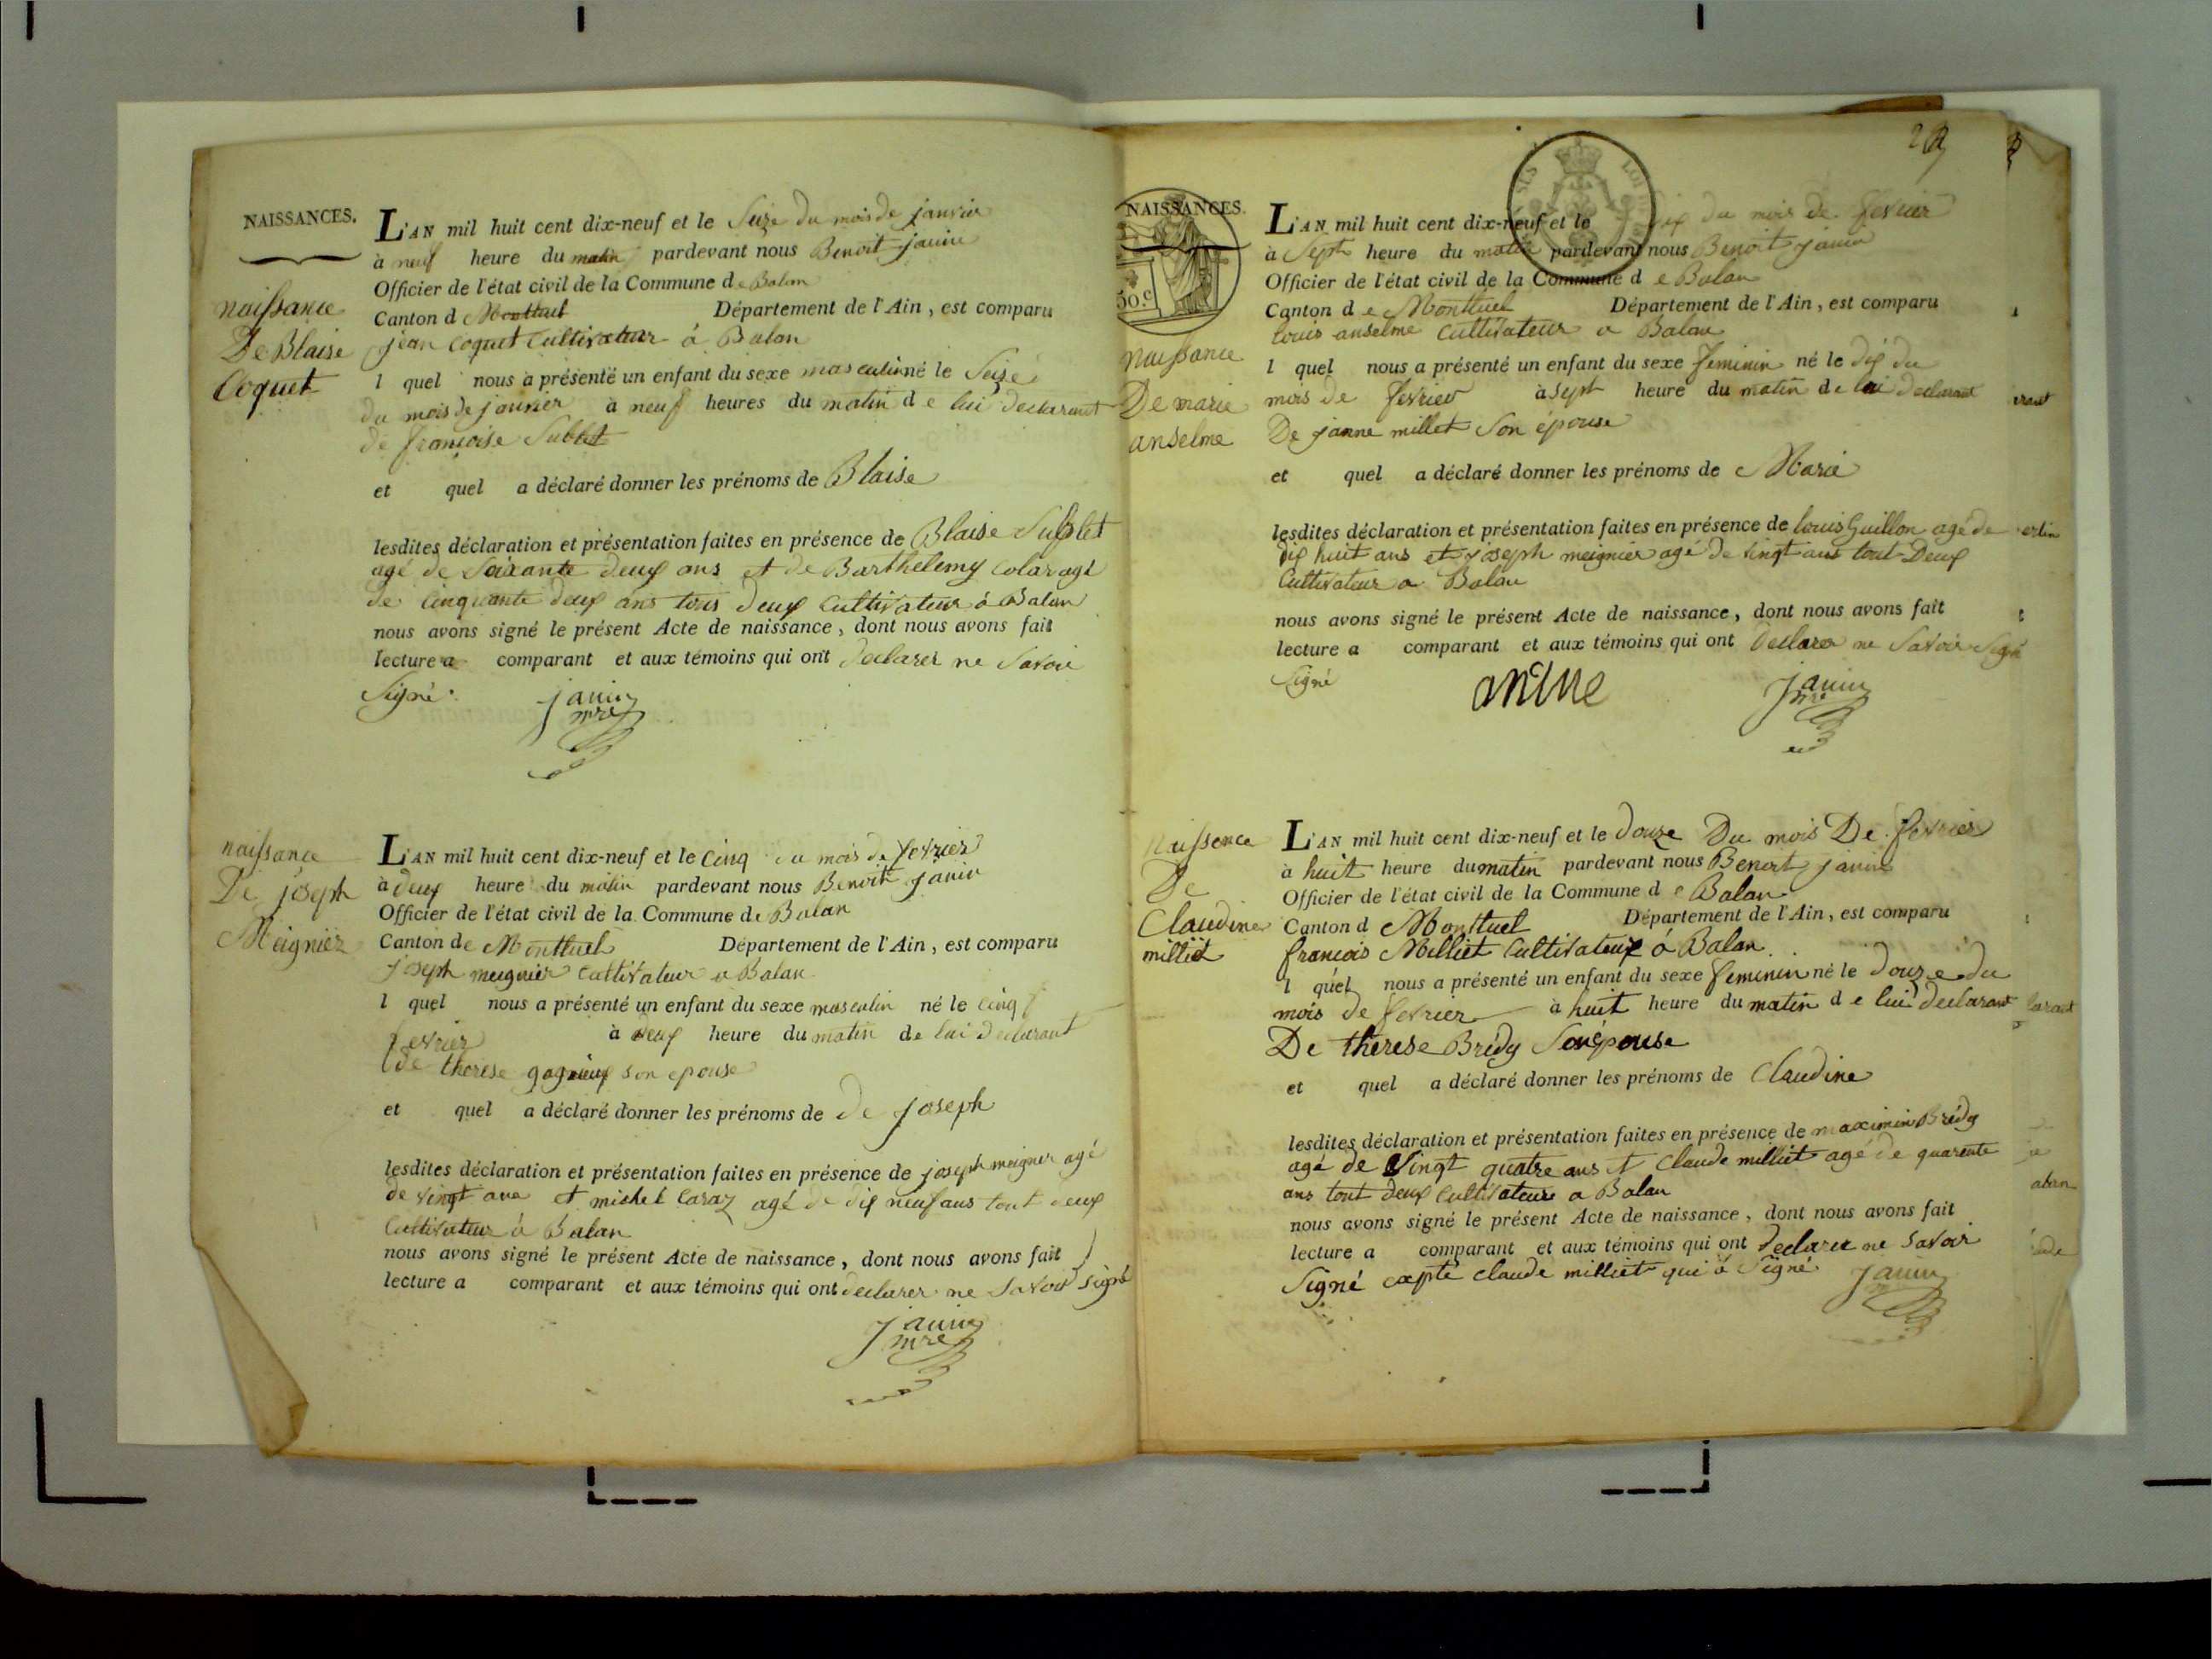 NAISSANCES.
naissance
De Blaise
Coquet
L'AN mil huit cent dix-neuf et le Seize du mois de janvier
à neuf heure du matin pardevant nous Benoit janin
Officier de l'état civil de la Commune de Balan
Canton d Montluel Département de l'Ain, est comparu
jean Coquet Cultivateur á Balan
l quel nous a présenté un enfant du sexe masculin né le Seize
du mois de janvier à neuf heures du matin de lui declarant
de françoise Sublet
et quel a déclaré donner les prénoms de Blaise
lesdites déclaration et présentation faites en présence de Blaise Sublet
agé de Soixante deux ans et de Barthelemy Colar agé
de Cinquante deux ans tous deux Cultivateur á Balan
nous avons signé le présent Acte de naissance, dont nous avons fait
lecture a comparant et aux témoins qui ont declarer ne Savoir
Signé.
janin
mre
naissance
De joseph
Meignier
L'AN mil huit cent dix-neuf et le Cinq du mois de fevrier
à deux heure du matin pardevant nous Benoit janin
Officier de l'état civil de la Commune de Balan
Canton de Montluel Département de l'Ain, est comparu
joseph meignier Cultivateur a Balan
l quel nous a présenté un enfant du sexe masculin né le Cinq
fevrier à heure du matin de lui declarant
de therese son epouse
et quel a déclaré donner les prénoms de De joseph
lesdites déclaration et présentation faites en présence de joseph meigner agé
de vingt ans et michel Caraz agé de dix neuf ans tout deux
Cultivateur á Balan
nous avons signé le présent Acte de naissance, dont nous avons fait
lecture a comparant et aux témoins qui ont declarer ne Savoir signé
janin
mre
NAISSANCES.
50.c
naissance
De marie
anselme
L'AN mil huit cent dix-neuf et le dix du mois de fevrier
à Sept heure du matin pardevant nous Benoit janin
Officier de l'état civil de la Commune de Balan
Canton de Montluel Département de l'Ain, est comparu
louis anselme Cultivateur a Balan
l quel nous a présenté un enfant du sexe feminin né le dix du
mois de fevrier à Sept heure du matin de lui declarant
De janne millet Son épouse
et quel a déclaré donner les prénoms de Marie
lesdites déclaration et présentation faites en présence de louis Guillon agé de
dix huit ans et joseph meignier agé de vingt ans tout Deux
Cultivateur a Balan
nous avons signé le présent Acte de naissance, dont nous avons fait
lecture a comparant et aux témoins qui ont declarer ne Savoir Signé
Signé
janin
mre
naissence
De
Claudine
milliet
L'AN mil huit cent dix-neuf et le douze Du mois De fevrier
à huit heure du matin pardevant nous Benoit janin
Officier de l'état civil de la Commune de Balan
Canton d Montluel Département de l'Ain, est comparu
françois Milliet Cultivateur á Balan
l quel nous a présenté un enfant du sexe feminin né le douze du
mois de fevrier à huit heure du matin de lui declarant
De therese Brédy Son épouse
et quel a déclaré donner les prénoms de Claudine
lesdites déclaration et présentation faites en présence de maximin Brédy
agé de Vingt quatre ans et Claude milliet agé de quarente
ans tout deux Cultivateurs a Balan
nous avons signé le présent Acte de naissance, dont nous avons fait
lecture a comparant et aux témoins qui ont declarer ne Savoir
Signé cepté claude milliet qui á Signé
janin